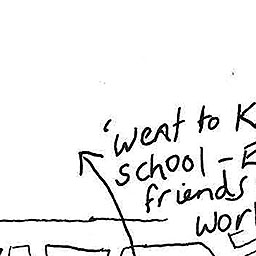 'went to K
school - E
friends
work